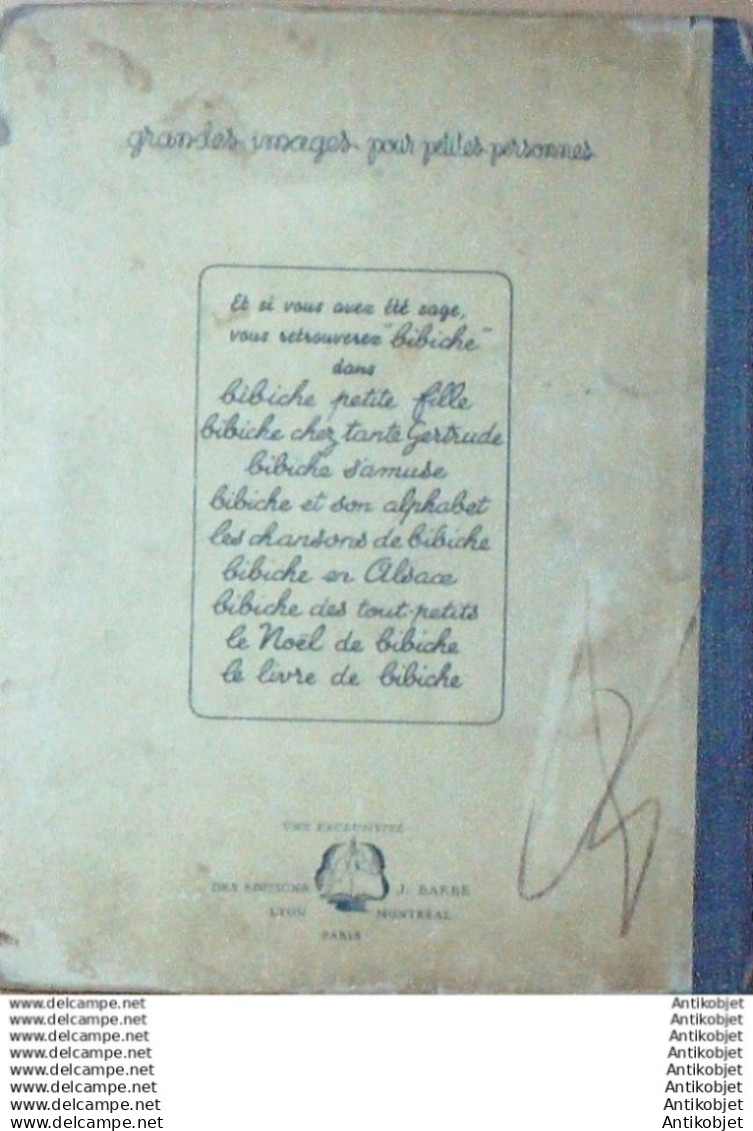 grandes images pour petites personnes
Et si vous avez été sage,
vous retrouverez "bibiche"
dans
bibiche petite fille
bibiche chez tante Gertrude
bibiche s'amuse
bibiche et son alphabet
les chansons de bibiche
bibiche en Alsace
bibiche des tout-petits
le Noël de bibiche
le livre de bibiche
UNE EXCLUSIVITÉ
DES EDITIONS J. BARBE
LYON MONTREAL
PARIS
www.delcampe.net Antikobjet
www.delcampe.net Antikobjet
www.delcampe.net Antikobjet
www.delcampe.net Antikobjet
www.delcampe.net Antikobjet
www.delcampe.net Antikobjet
www.delcampe.net Antikobjet
www.delcampe.net Antikobjet